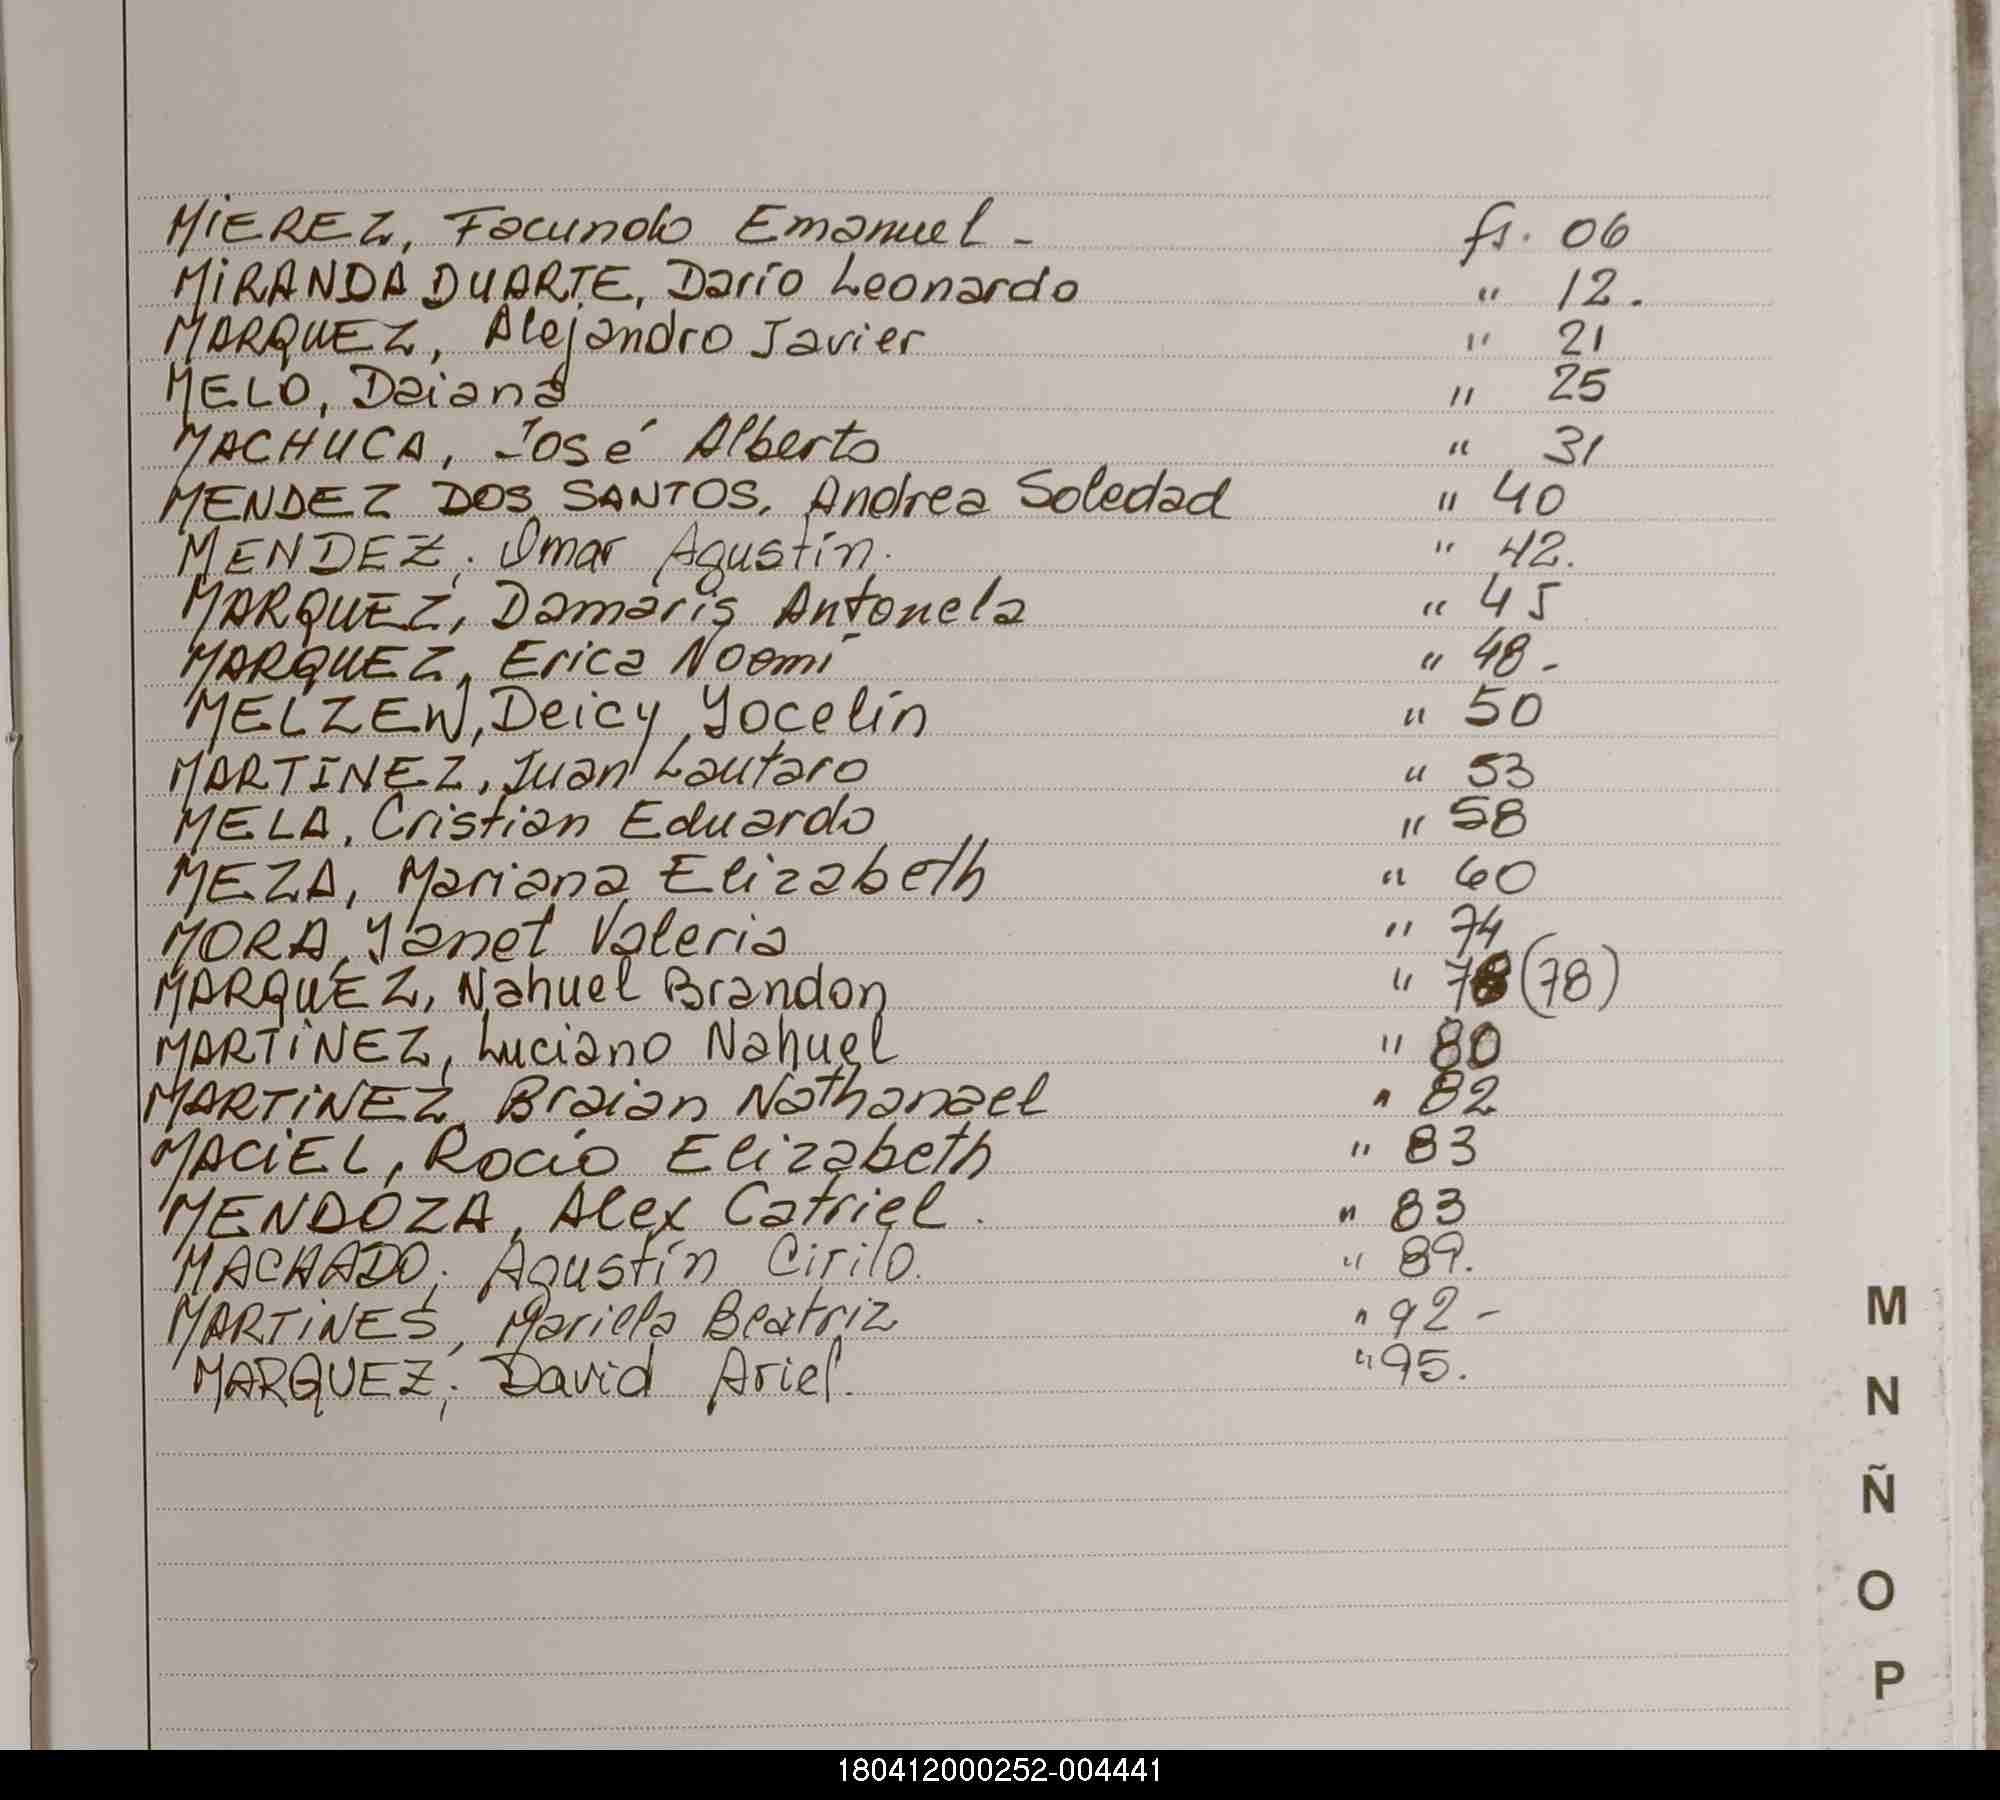 MIEREZ, Facundo Emanuel - fs. 06
MIRANDA DUARTE, Darío Leonardo " 12.
MARQUEZ, Alejandro Javier " 21
MELO, Daiana " 25
MACHUCA, José Alberto " 31
MENDEZ DOS SANTOS, Andrea Soledad " 40
MENDEZ, Omar Agustín. " 42.
MARQUEZ, Damaris Antonela " 45
MARQUEZ, Erica Noemí " 48-
MELZEW, Deicy Yocelín " 50
MARTINEZ, Juan Lautaro " 53
MELA, Cristian Eduardo " 58
MEZA, Mariana Elizabeth " 60
MORA, Yanet Valeria " 74
MARQUEZ, Nahuel Brandon " 78 (78)
MARTINEZ, Luciano Nahuel " 80
MARTINEZ, Braian Nathanael " 82
MACIEL, Rocío Elizabeth " 83
MENDOZA, Alex Catriel. " 83
MACHADO, Agustín Cirilo. " 89.
MARTINES, Mariela Beatriz " 92-
MARQUEZ, David Ariel. " 95.
M
N
Ñ
O
P
180412000252-004441